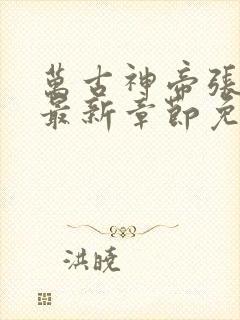 萬古神帝張
最新章節免
洪曉